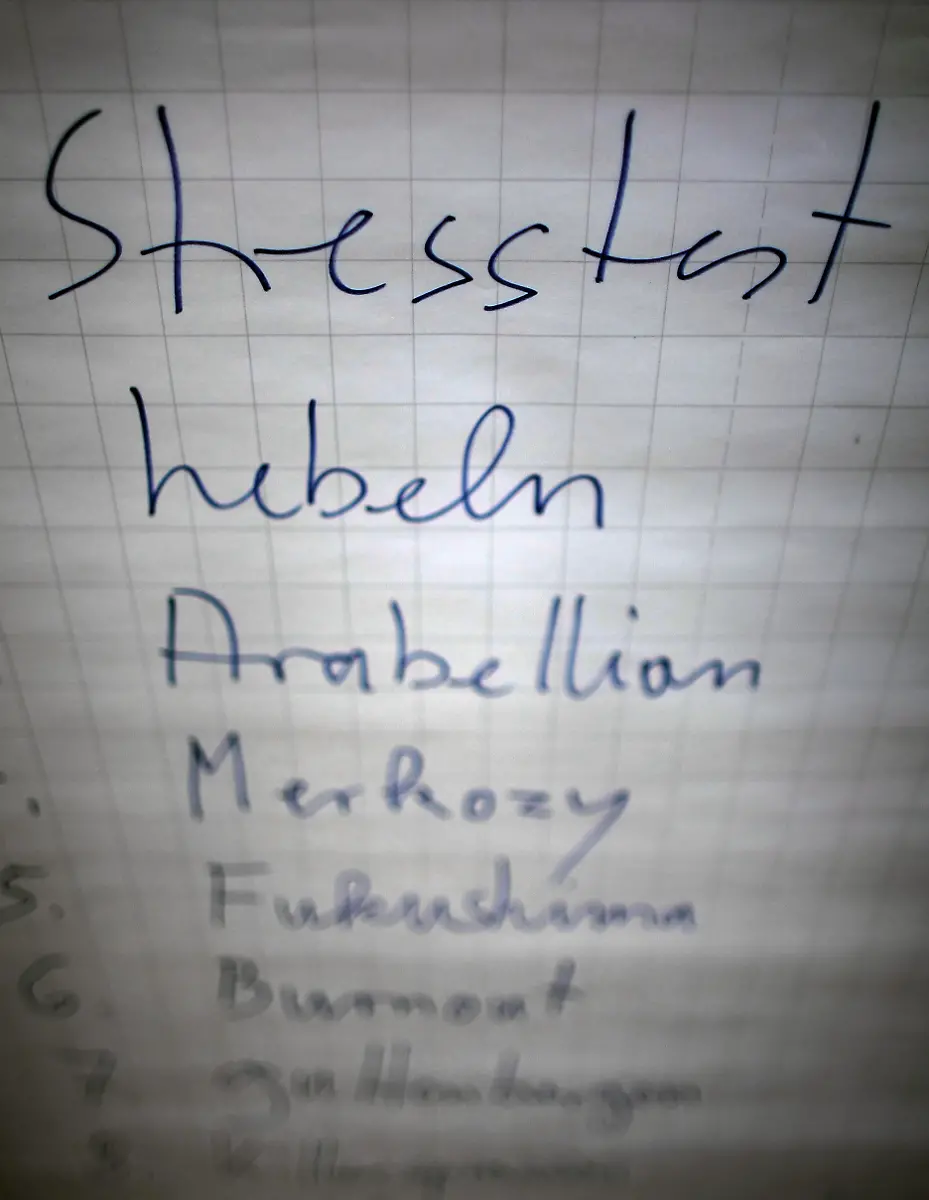 Stresstest
hebeln
Arabellion
Merkozy
5. Fukushima
6. Burnout
7. guttenbergen